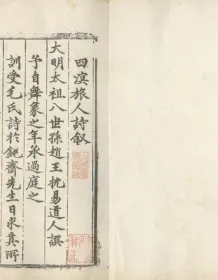 四溟旅人詩敘
大明太祖八世孫趙王枕易道人譔
予自舞象之年承過庭之
訓受毛氏詩於鈍齋先生日求其所